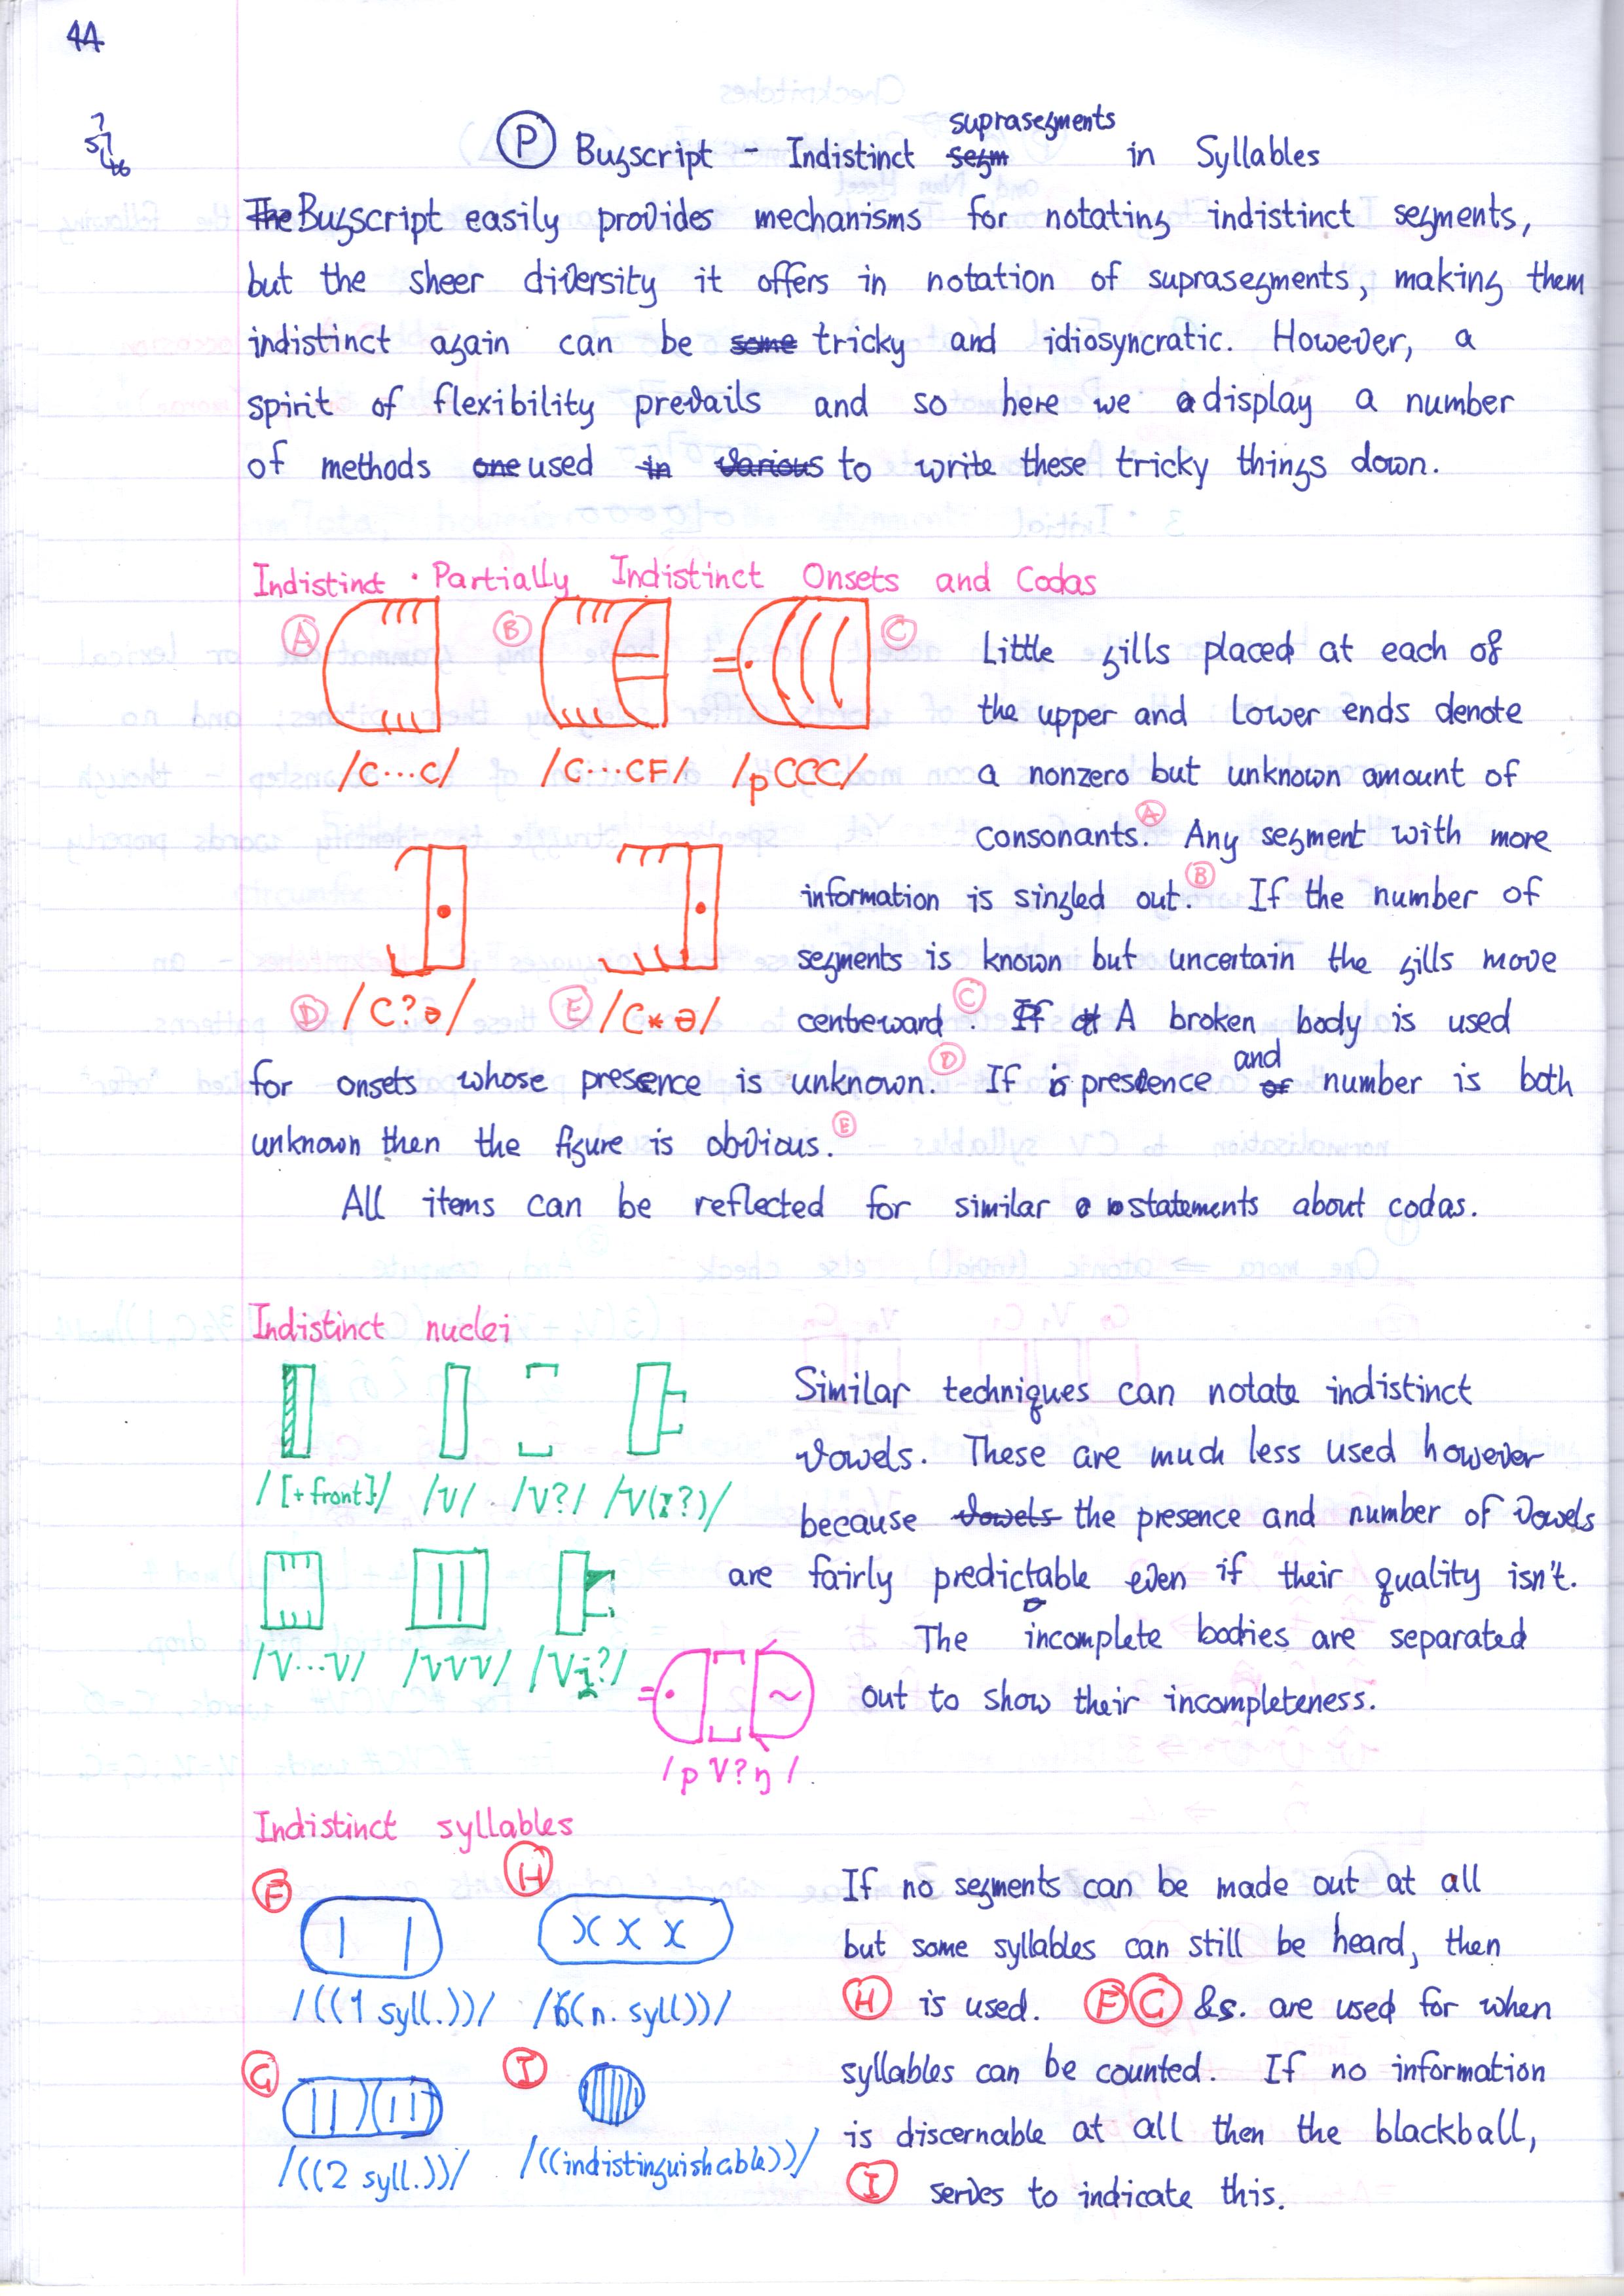 44
Ⓟ Bugscript - Indistinct segm suprasegments in Syllables
The Bugscript easily provides mechanisms for notating indistinct segments,
but the sheer diversity it offers in notation of suprasegments, making them
indistinct again can be some tricky and idiosyncratic. However, a
spirit of flexibility prevails and so here we display a number
of methods one used in various to write these tricky things down.
Indistinct · Partially Indistinct Onsets and Codas
Ⓐ Ⓑ Ⓒ
/C...C/ /C...CF/ /pCCC/
Little gills placed at each of
the upper and lower ends denote
a nonzero but unknown amount of
consonants.Ⓐ Any segment with more
information is singled out.Ⓑ If the number of
segments is known but uncertain the gills move
centreward Ⓒ. If A broken body is used
Ⓓ /C?ə/ Ⓔ /C*ə/
for onsets whose presence is unknown.Ⓓ If presence or and number is both
unknown then the figure is obvious.Ⓔ
All items can be reflected for similar statements about codas.
Indistinct nuclei
/[+front]/ /V/ /V?/ /V(ɪ?)/
/V...V/ /VVV/ /Vi̯?/
/pV?ŋ/
Similar techniques can notate indistinct
vowels. These are much less used however
because vowels the presence and number of vowels
are fairly predictable even if their quality isn't.
The incomplete bodies are separated
out to show their incompleteness.
Indistinct syllables
Ⓕ Ⓗ
/((1 syll.))/ /((n. syll))/
Ⓖ Ⓘ
/((2 syll.))/ /((indistinguishable))/
If no segments can be made out at all
but some syllables can still be heard, then
Ⓗ is used. ⒻⒼ &s. are used for when
syllables can be counted. If no information
is discernable at all then the blackball,
Ⓘ serves to indicate this.